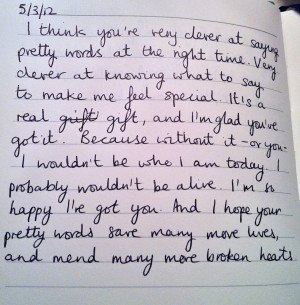 5/3/12
I think you're very clever at saying
pretty words at the right time. Very
clever at knowing what to say
to make me feel special. It's a
real guift gift, and I'm glad you've
got it. Because without it - or you -
I wouldn't be who I am today. I
probably wouldn't be alive. I'm so
happy I've got you. And I hope your
pretty words save many more lives,
and mend many more broken hearts.